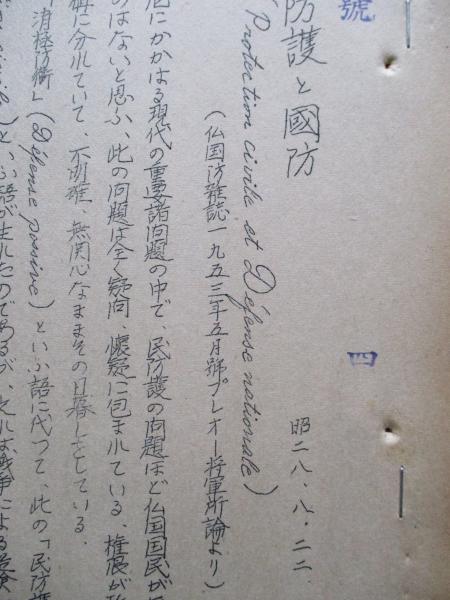 號 四
防護と國防
昭二八．八．二二
(Protection civile et Défense nationale)
(仏国防雑誌一九五三年五月號プレオー将軍所論より)
にかかはる現代の重要諸問題の中で、民防護の問題ほど仏国国民が
のはないと思ふ、此の問題は全く疑問、懐疑に包まれている、権限が
に分れていて、不明確、無関心なままその日暮しをしている。
「消極防衛」(Défense passive)といふ語に代つて、此の「民防護
civile)といふ語が生れたのであるが、之れは戦争による危険